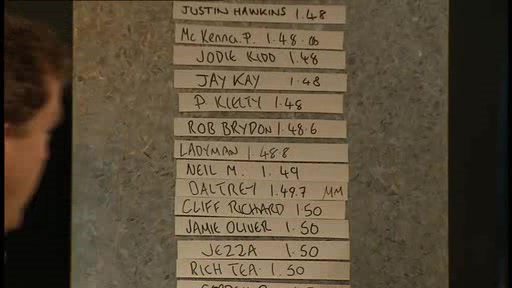 JUSTIN HAWKINS 1.48
McKenna.P. 1.48.06
JODIE KIDD 1.48
JAY KAY 1.48
P KIELTY 1.48
ROB BRYDON 1.48.6
LADYMAN 1.48.8
NEIL M. 1.49
DALTREY 1.49.7 MM
CLIFF RICHARD 1.50
JAMIE OLIVER 1.50
JEZZA 1.50
RICH TEA 1.50